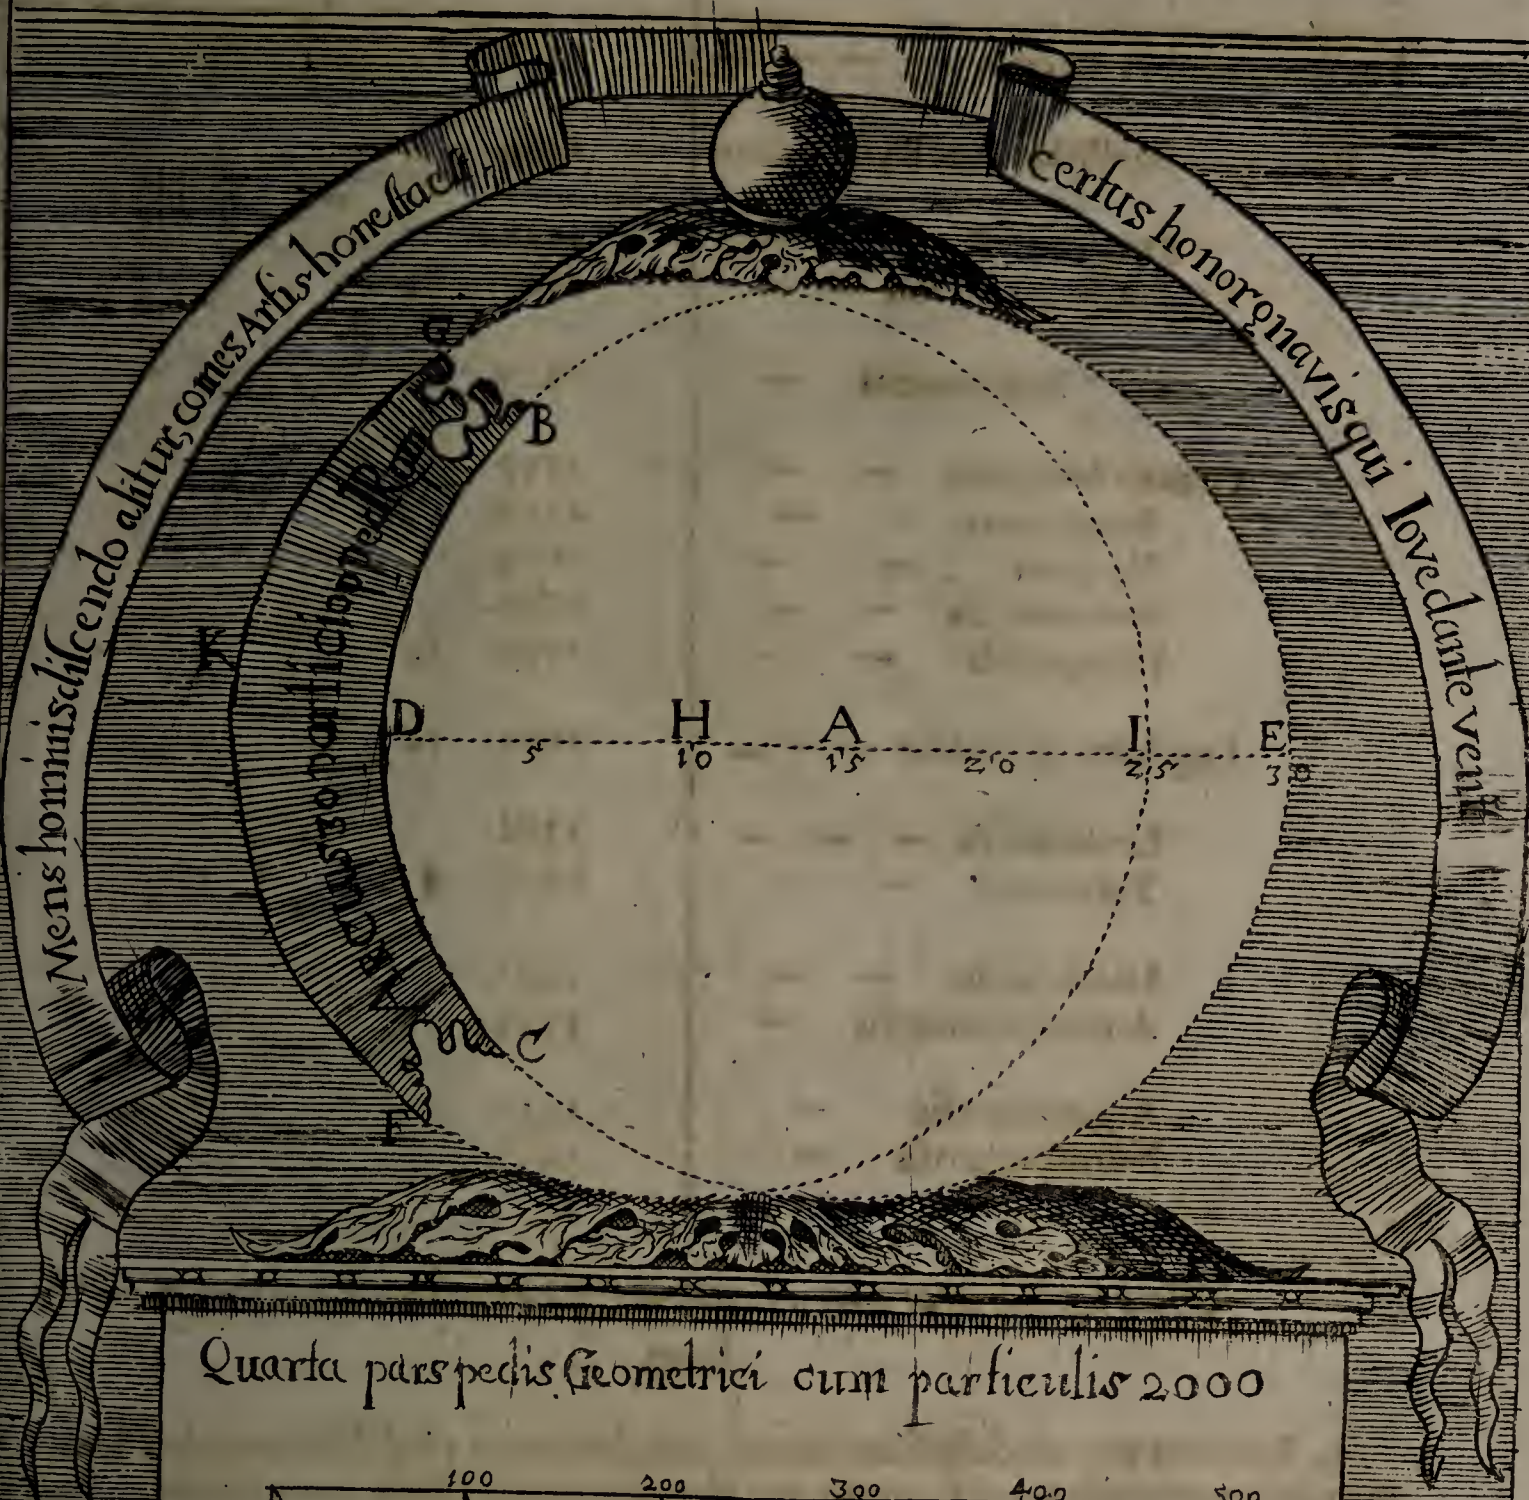 Mens hominis discendo alitur, comes Artis honesta est,
certus honor gnavis qui Iove dante venit
G
B
K
D H A I E
5 10 15 20 25 30
C
F
Quarta pars pedis Geometrici cum particulis 2000
100 200 300 400 500